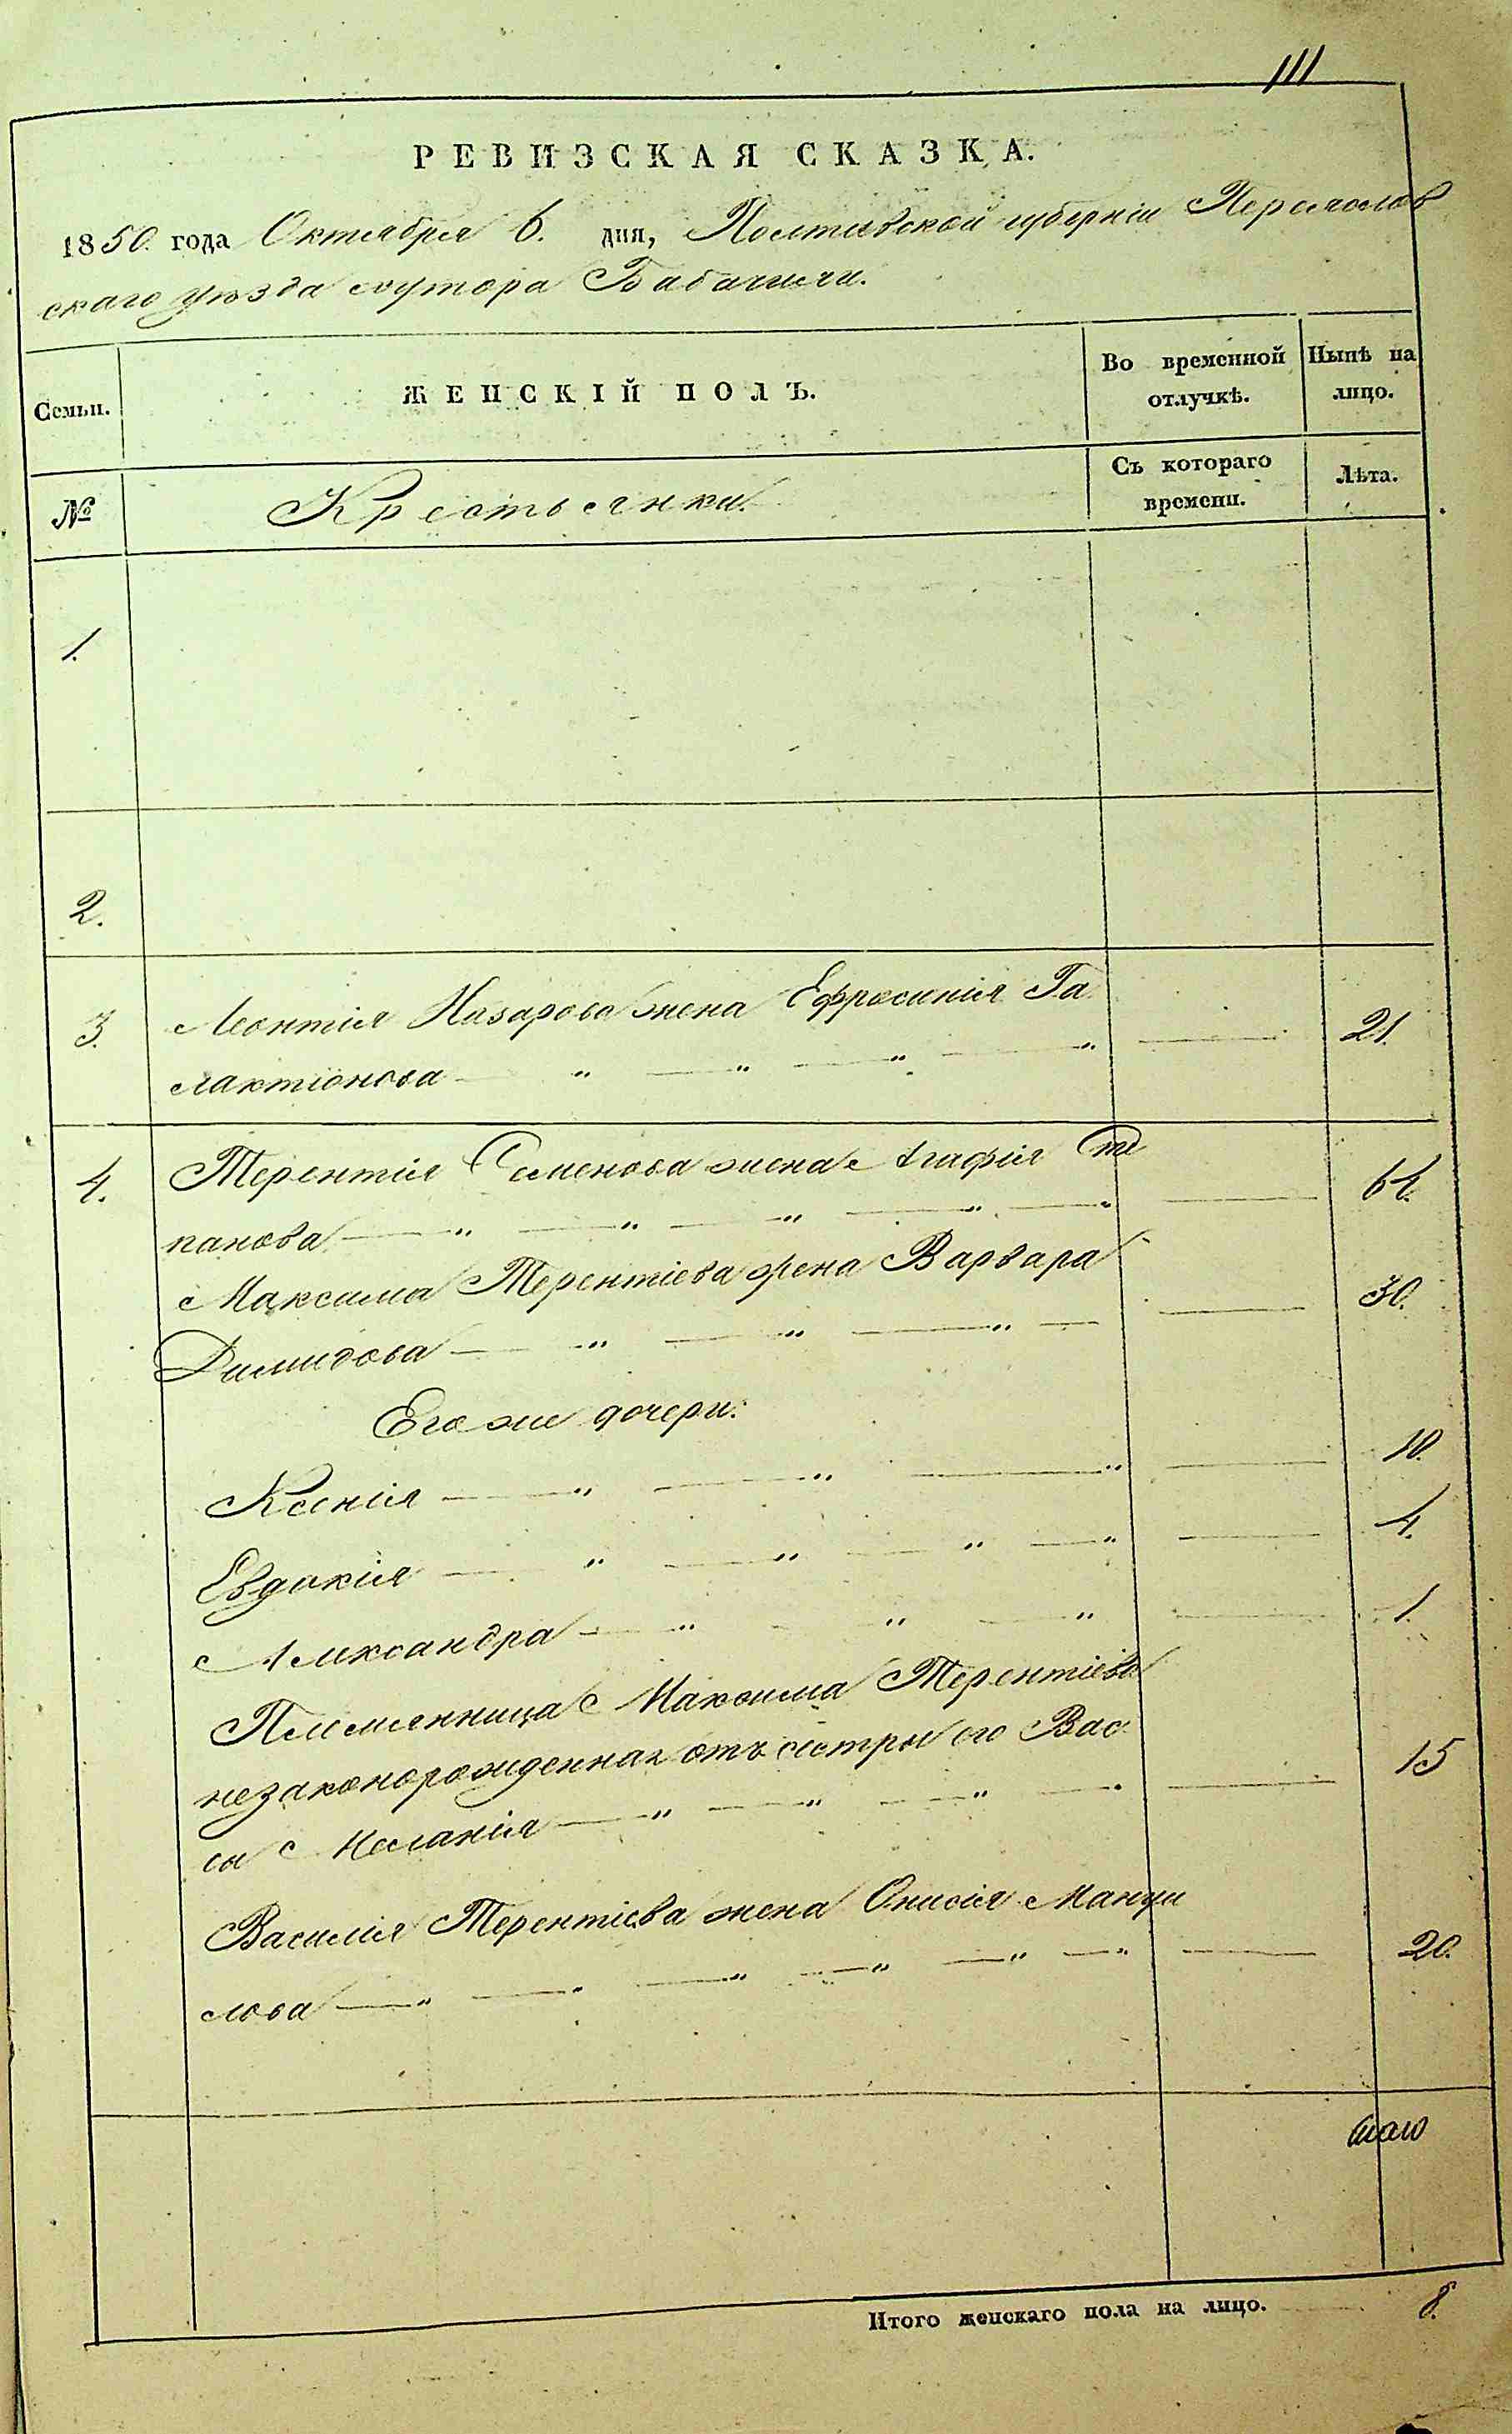 111
РЕВИЗСКАЯ СКАЗКА.
1850. года Октября 6. дня, Полтавской губерніи Переяслав
скаго уѣзда хутора
Семьи.
ЖЕНСКІЙ ПОЛЪ.
Во временной
отлучкѣ.
Нынѣ на
лицо.
№
Крестьянки.
Съ котораго
времени.
Лѣта.
1.
2.
3. Леонтія Назарова жена Ефросинія Га
лактіонова 21.
4. Терентія Семенова жена Агафія Сте
панова
Максима Терентіева жена Варвара
Димидова 30.
Его же дочери:
Ксенія 10.
Евдокія 4.
Александра 1.
Племянница Максима Терентіева
незаконорожденная отъ сестры его Вас
сы Меланія 15
Василія Терентіева жена Онисія Мануи
лова 20.
Итого женскаго пола на лицо. 8.